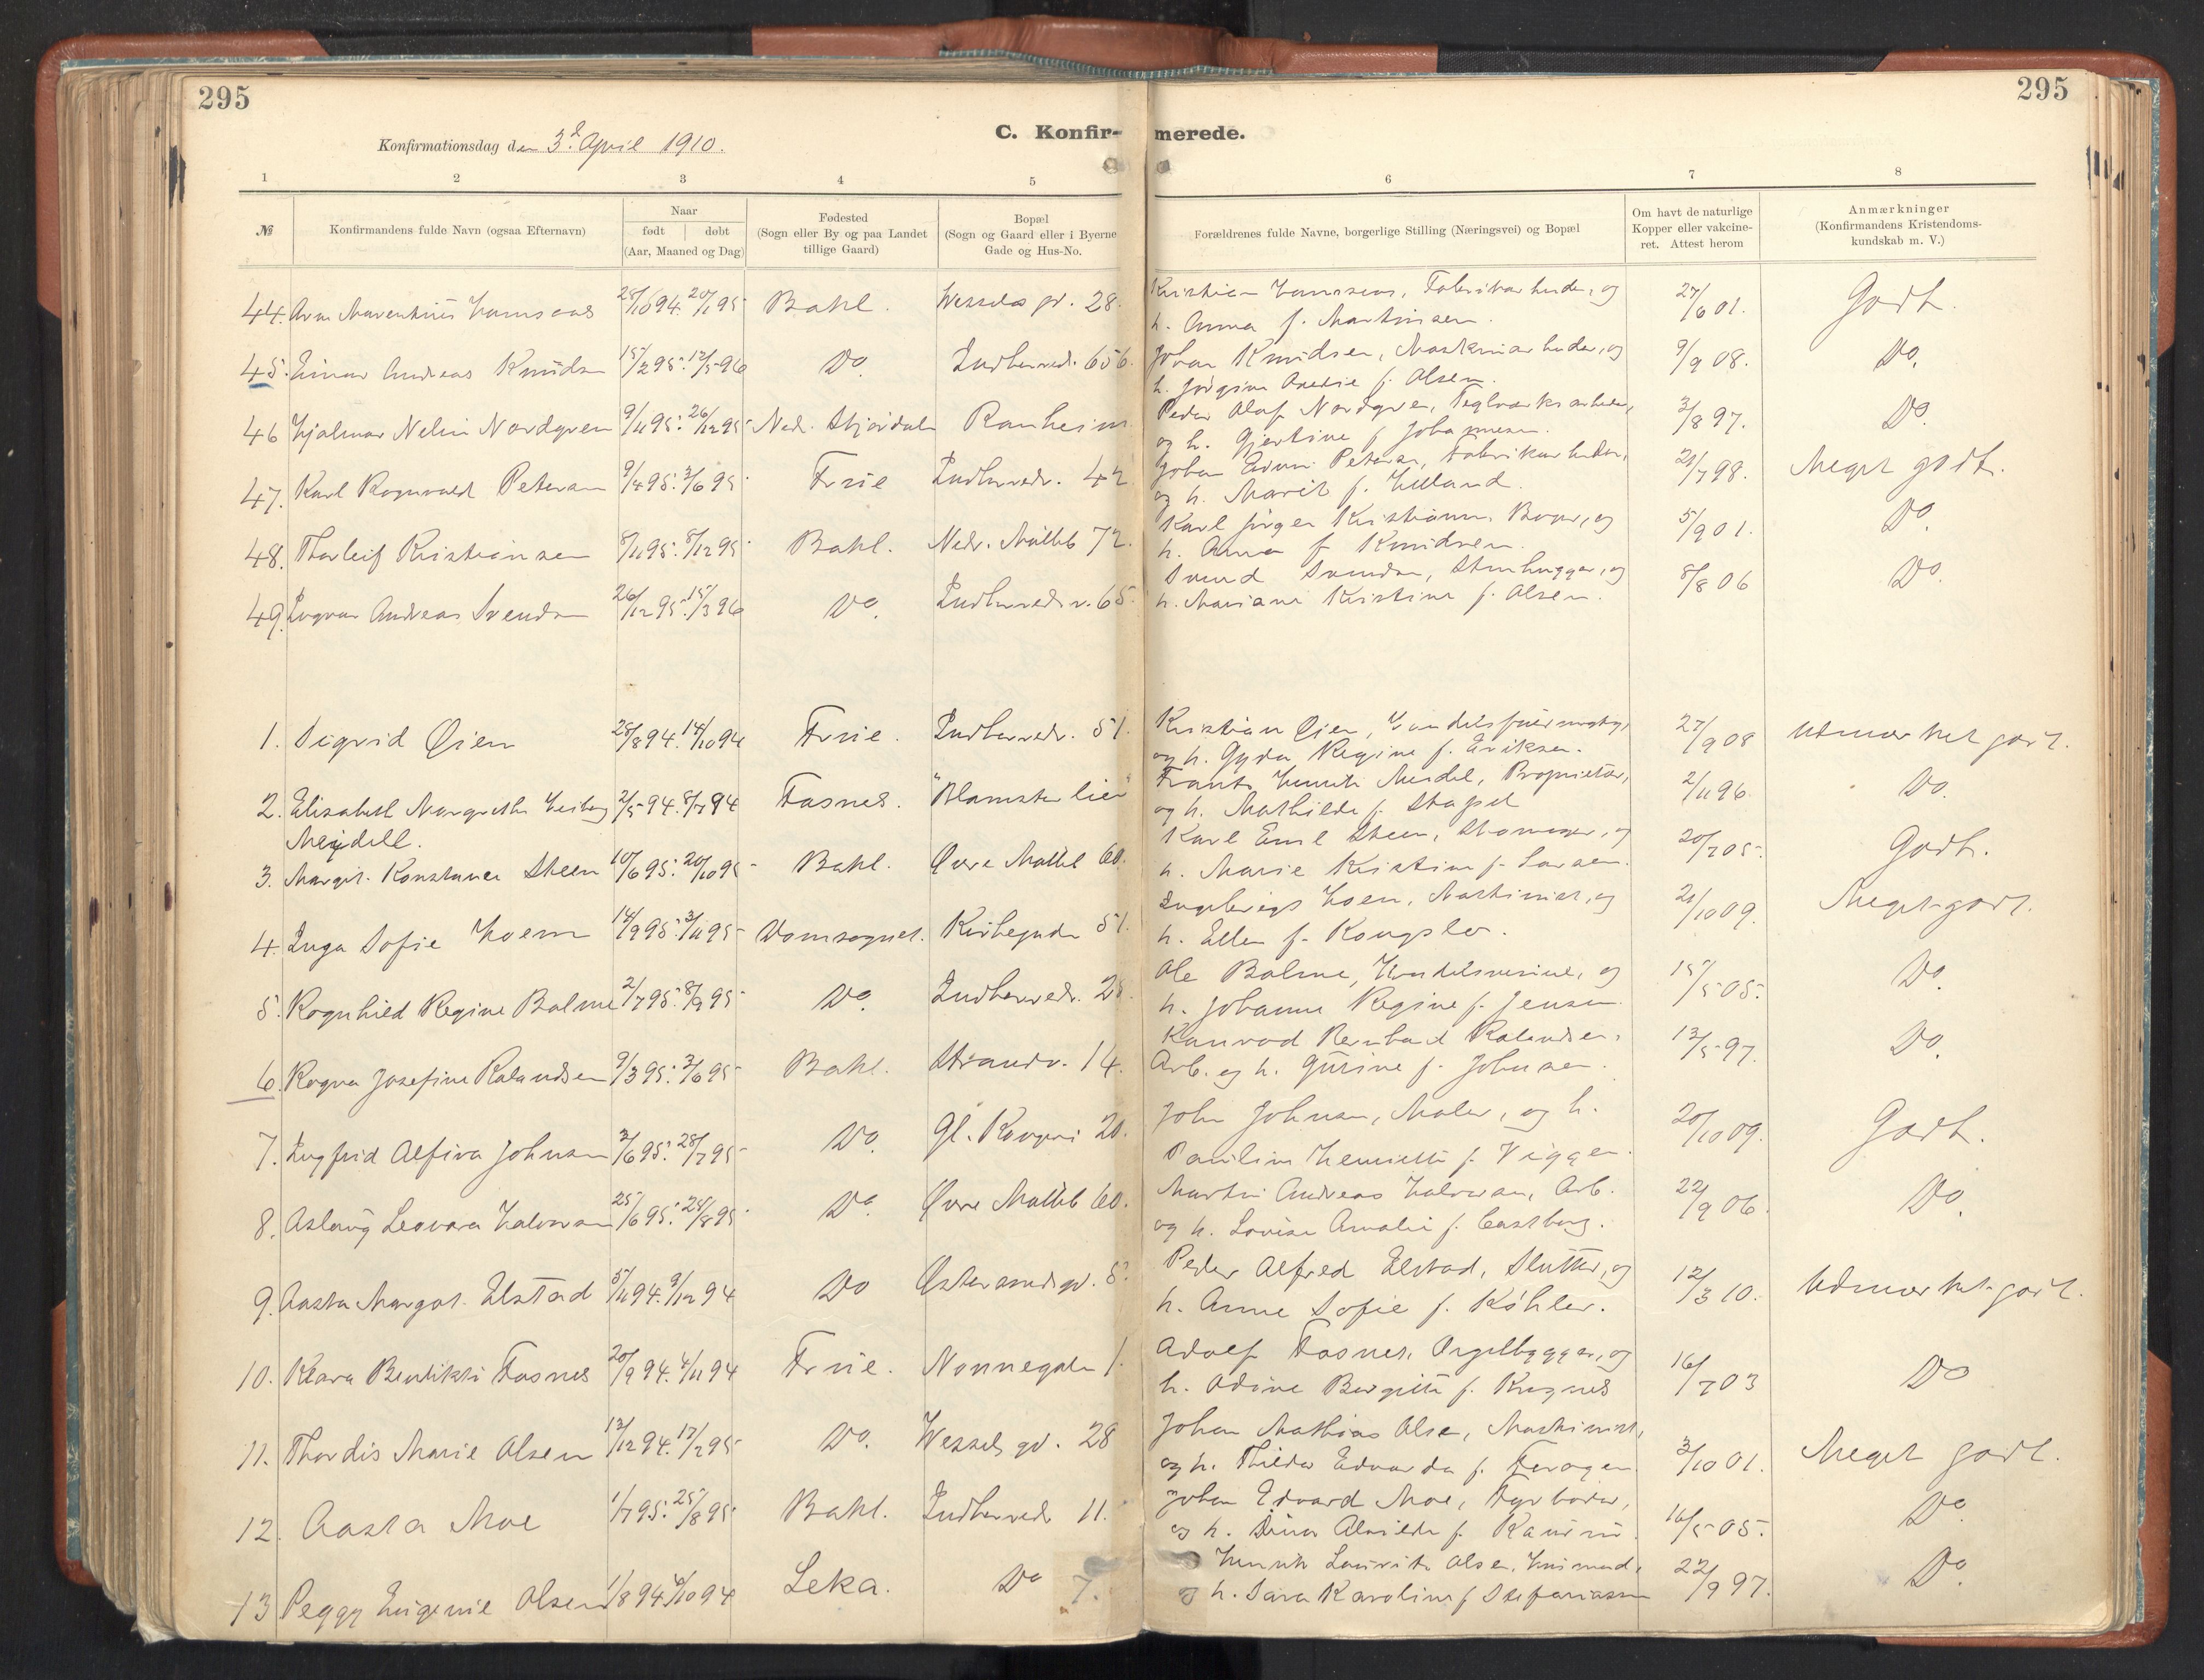 295
295
C. Konfir- merede.
Konfirmationsdag den 3d. April 1910.
1 2 3 4 5 6 7 8
№
Konfirmandens fulde Navn (ogsaa Efternavn)
Naar
født døbt
(Aar, Maaned og Dag)
Fødested
(Sogn eller By og paa Landet
tillige Gaard)
Bopæl
(Sogn og Gaard eller i Byerne
Gade og Hus-No.
Forældrenes fulde Navne, borgerlige Stilling (Næringsvei) og Bopæl
Om havt de naturlige
Kopper eller vakcine-
ret. Attest herom
Anmærkninger
(Konfirmandens Kristendoms-
kundskab m. V.)
44. 28/10 94. 20/1 95 Bakl. Wessels gd. 28. Kristian og 27/6 01. Godt.
h. Anna f. Martinsen.
45. Einar Andreas Knudsen 15/2 95. 12/5 96 Do. Indherredv. 65b Johan Knudsen, og 9/9 08. Do.
f. Olsen.
46 Hjalmar Nordgren 9/11 95. 26/12 95 Ned. Stjørdalen Ranheim Peder Olaf Nordgren, 3/8 97. Do.
og h. Gjertine f. Johannesen.
47. Karl Rognvald Petersen 9/4 95. 3/6 95 Frue Indherredv. 42 Johan Petersen, Fabrikarbeider, 21/7 98. Meget godt.
og h. Marit f.
48. Thorleif Kristiansen 8/11 95. 8/12 95 Bakl. Nedr. Møllb 72. Karl Jørgen og 5/9 01. Do.
h. Anna f. Knudsen.
49. Ingvar Andreas Svendsen 26/12 95. 15/3 96 Do. Indherredsv. 65. Svend Svendsen, Stenhugger, og 8/8 06 Do.
h. Mariane Kristine f. Olsen.
1. Sigrid Øien 28/8 94. 14/10 94 Frue. Indherredv. 51. Kristian Øien, 27/9 08 Udmærket godt.
og h. Gyda Regine f. Eriksen.
2. Elisabeth Margrethe 2/5 94. 8/7 94 Fosnes. Proprietær, 2/11 96. Do.
Meydell. og h. Mathilde f. Stapel
3. Margit Konstance Steen 10/6 95. 20/10 95 Bakl. Øvre Møllbl 60. Karl Emil Steen, og 20/7 05. Godt.
h. Marie Kristine f. Larsen.
4. Inga Sofie Hoem 14/9 95. 3/11 95 Domsognet. Kirkegaden 51. Hoem, Maskinist, og 21/10 09. Meget godt.
h. Ellen f.
5. Rognhild Regine Balme 2/7 95. 8/9 95 Do. Indherredv. 28. Ole Balme, og 15/5 05. Do.
h. Johanne Regine f. Jensen.
6. Rogna Josefine Rolandsen 9/3 95. 3/6 95 Bakl. Strandv. 14. Konrad Rolandsen, 12/5 97. Do.
Arb. og h. Gurine f. Johnsen.
7. Ingfrid Alfiva Johnsen 2/6 95. 28/7 95 Do. Gl. Kongevei 20. John Johnsen, Maler, og h. 20/10 09. Godt.
f. Vigger.
8. Aslaug Leovara Halvorsen 25/6 95. 25/8 95 Do. Øvre Møllb 60. Martin Andreas Halvorsen, Arb. 22/9 06. Do.
og h. Lovise Amalie f. Castberg.
9. Aasta Margot Elstad 5/11 94. 9/12 94 Do Østersundsgd. 8. Peder Alfred Elstad, Slutter, og 12/3 10. Udmærket godt.
h. Anne Sofie f. Köhler.
10. Klara Benedikte Fosnes 20/9 94. 4/11 94 Frue. Nonnegaden 1. Adolf Fosnes, Orgelbygger, og 16/7 03 Do
h. Odine Bergitte f.
11. Thordis Marie Olsen 13/12 94. 17/2 95 Do. Wessels gd. 28 Johan Mathias Olsen, Maskinist, 3/10 01. Meget godt.
og h. Thilda Edvarda f.
12. Aasta Moe 1/7 95. 25/8 95 Bakl. Indherredv 11. Johan Edvard Moe, Fyrbøder, 16/5 05. Do.
og h. f.
13 Peggy Eugenie Olsen 1/8 94 10 94 Leka. Do 7. Henrik Olsen, 22/9 97. Do.
og h. Sara Karoline f